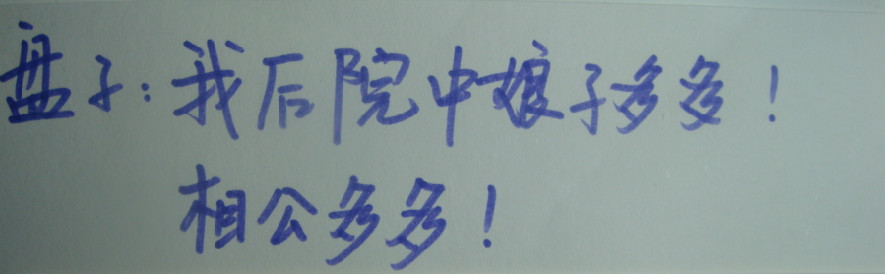 盘子:我后院中娘子多多!
相公多多!